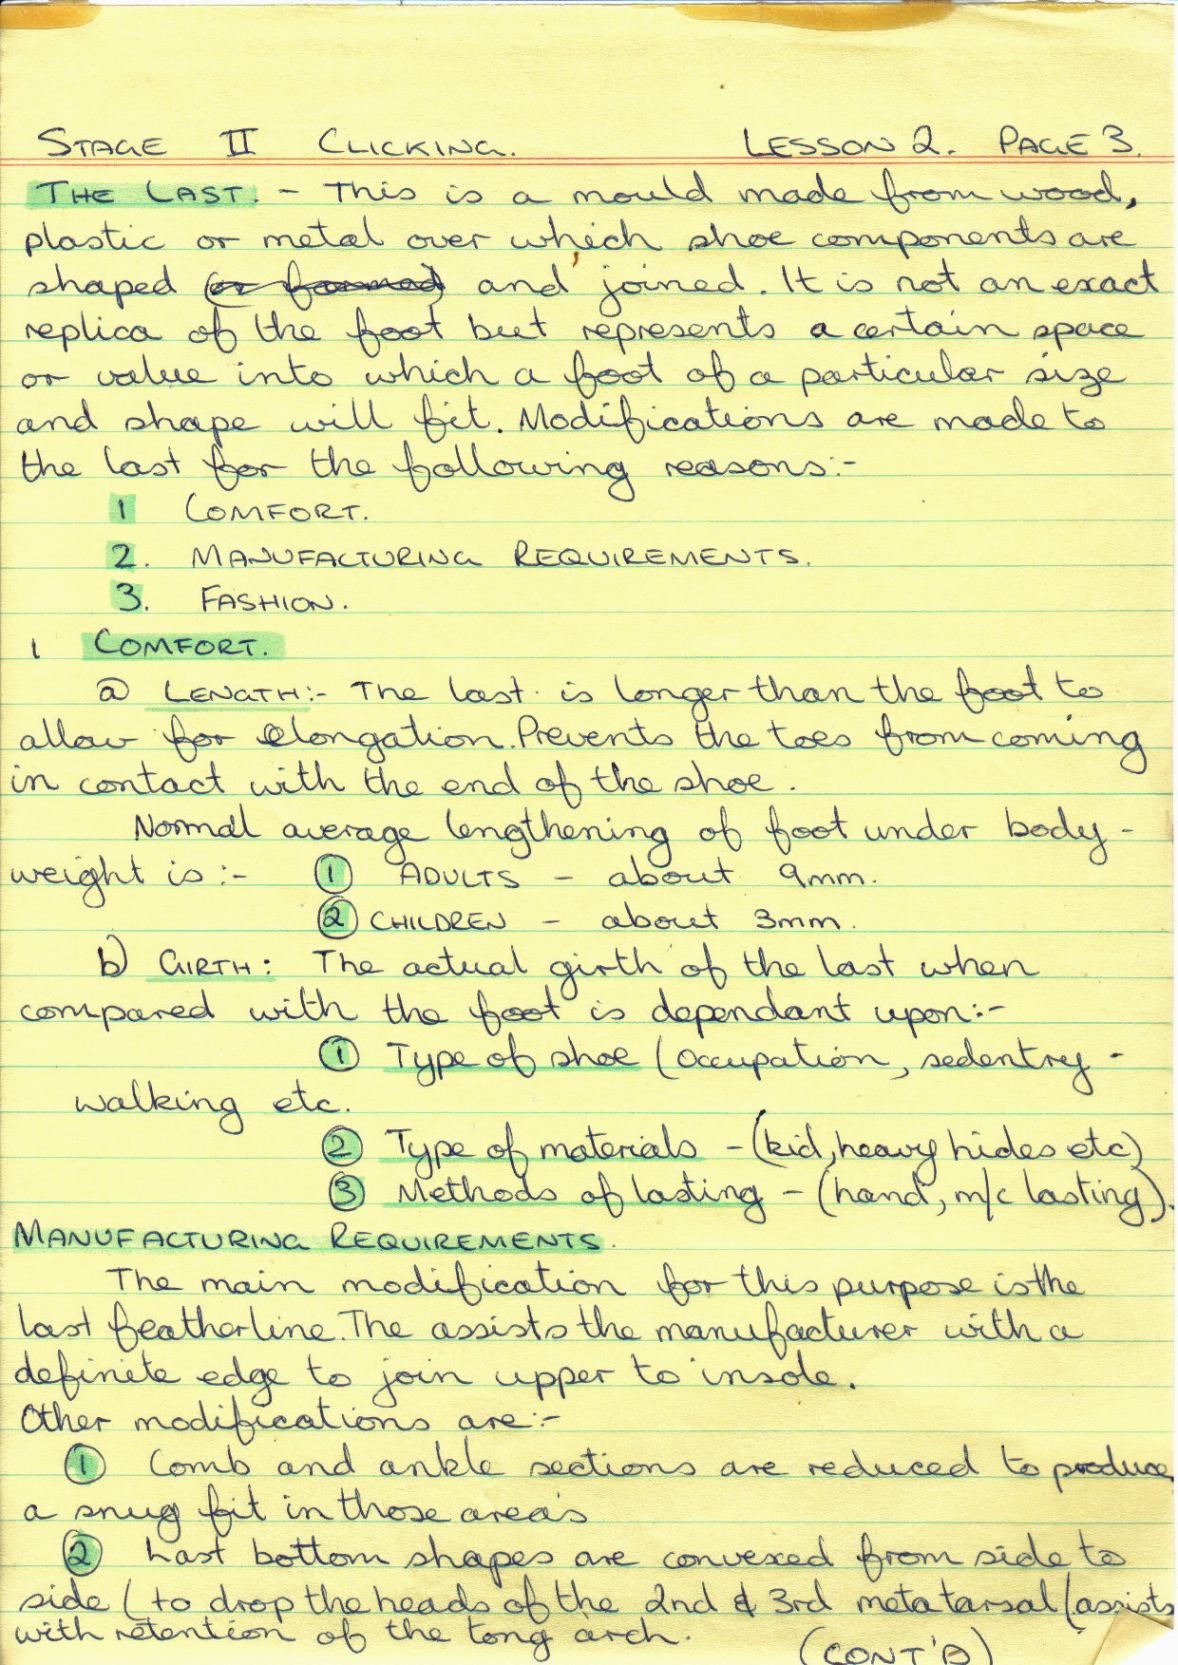 STAGE II CLICKING. LESSON 2. PAGE 3.
THE LAST. - This is a mould made from wood,
plastic or metal over which shoe components are
shaped (or formed) and joined. It is not an exact
replica of the foot but represents a certain space
or value into which a foot of a particular size
and shape will fit. Modifications are made to
the last for the following reasons:-
1 COMFORT.
2. MANUFACTURING REQUIREMENTS.
3. FASHION.
1 COMFORT.
a) LENGTH:- The last is longer than the foot to
allow for elongation. Prevents the toes from coming
in contact with the end of the shoe.
Normal average lengthening of foot under body-
weight is:- 1 ADULTS - about 9mm.
2 CHILDREN - about 3mm.
b) GIRTH: The actual girth of the last when
compared with the foot is dependant upon:-
1 Type of shoe (occupation, sedentry -
walking etc.
2 Type of materials - (kid, heavy hides etc)
3 Methods of lasting - (hand, m/c lasting).
MANUFACTURING REQUIREMENTS.
The main modification for this purpose is the
last featherline. The assists the manufacturer with a
definite edge to join upper to insole.
Other modifications are:-
1 Comb and ankle sections are reduced to produce
a snug fit in those areas
2 Last bottom shapes are convexed from side to
side (to drop the heads of the 2nd & 3rd metatarsal (assists
with retention of the long arch.
(CONT'D)